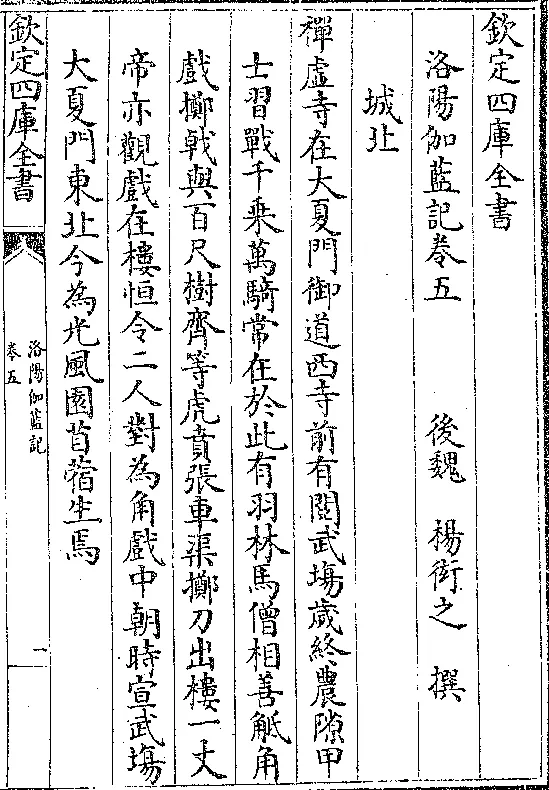 欽定四庫全書
洛陽伽藍記卷五　後魏　楊衒之　撰
城北
禪虛寺在大夏門御道西寺前有閱武場歲終農隙甲
士習戰千乘萬騎常在於此有羽林馬僧相善觝角
戲擲戟與百尺樹齊等虎賁張車渠擲刀出樓一丈
帝亦觀戲在樓恒令二人對為角戲中朝時宣武場
大夏門東北今為光風園苜蓿生焉
欽定四庫全書
洛陽伽藍記
卷五
一